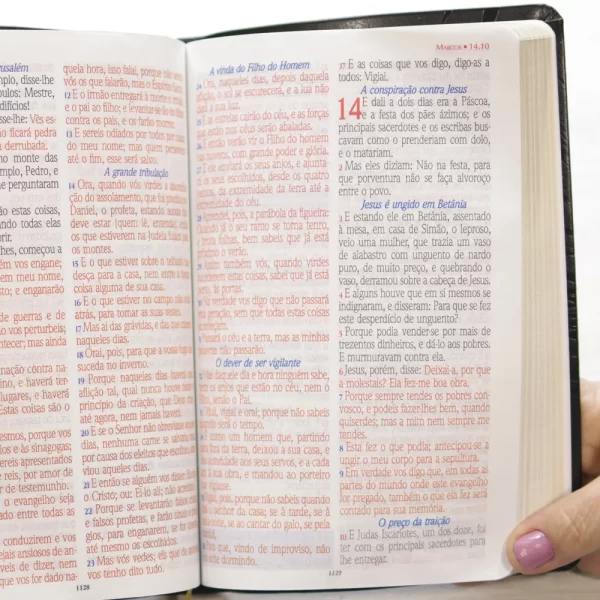 rusalém
mplo, disse-lhe
pulos: Mestre,
difícios!
sse-lhe: Vês es-
não ficará pedra
a derrubada.
no monte das
mplo, Pedro, e
he perguntaram
estas coisas,
ando todas elas
rir.
lhes, começou a
ém vos engane;
em meu nome,
isto; e enganarão
de guerras e de
vos perturbeis;
ntecer; mas ainda
nação contra na-
ino, e haverá ter-
lugares, e haverá
Estas coisas são o
esmos, porque vos
ios e às sinagogas;
ereis apresentados
e reis, por amor de
r de testemunho.
o evangelho seja
ado entre todas as
conduzirem e vos
ejais ansiosos de an-
veis de dizer, nem
que vos for dado na-
quela hora, isso falai, porque não
vós os que falarão, mas o Espírito
12 E o irmão entregará à morte o
e o pai ao filho; e levantar-se-ão os filhos
contra os pais, e os farão morrer.
13 E sereis odiados por todos por
do meu nome; mas quem perseverar
até o fim, esse será salvo.
A grande tribulação
14 Ora, quando vós virdes a abomina-
ção do assolamento, que foi predita
Daniel, o profeta, estando aonde
deve estar (quem lê, entenda),
os que estiverem na Judeia fujam
os montes.
15 E o que estiver sobre o telhado
desça para a casa, nem entre a
coisa alguma de sua casa.
16 E o que estiver no campo não
atrás, para tomar as suas vestes.
17 Mas ai das grávidas, e das que
naqueles dias.
18 Orai, pois, para que a vossa fuga
suceda no inverno.
19 Porque naqueles dias haverá
aflição tal, qual nunca houve
princípio da criação, que Deus
até agora, nem jamais haverá.
20 E se o Senhor não abreviasse
dias, nenhuma carne se salvaria;
por causa dos eleitos que escolheu
viou aqueles dias.
21 E então se alguém vos disser:
o Cristo; ou: Ei-lo ali; não acrediteis
22 Porque se levantarão falsos
e falsos profetas, e farão
gios, para enganarem, se for
até mesmo os escolhidos.
23 Mas vós vedes; eis que de
vos tenho dito tudo.
1128
A vinda do Filho do Homem
24 Ora, naqueles dias, depois daquela
aflição, o sol se escurecerá, e a lua não
dará a sua luz.
25 E as estrelas cairão do céu, e as forças
que estão nos céus serão abaladas.
26 E então verão vir o Filho do homem
nas nuvens, com grande poder e glória.
27 E ele enviará os seus anjos, e ajunta-
rá os seus escolhidos, desde os quatro
ventos, da extremidade da terra até a
extremidade do céu.
28 Aprendei, pois, a parábola da figueira:
Quando já o seu ramo se torna tenro,
e brota folhas, bem sabeis que já está
próximo o verão.
29 Assim também vós, quando virdes
acontecerem estas coisas, sabei que já está
perto, às portas.
30 Na verdade vos digo que não passará
esta geração, sem que todas estas coisas
aconteçam.
31 Passará o céu e a terra, mas as minhas
palavras não passarão.
O dever de ser vigilante
32 Mas daquele dia e hora ninguém sabe,
nem os anjos que estão no céu, nem o
Filho, senão o Pai.
33 Olhai, vigiai e orai; porque não sabeis
quando será o tempo.
34 É como um homem que, partindo
para fora da terra, deixou a sua casa, e
deu autoridade aos seus servos, e a cada
um a sua obra, e mandou ao porteiro
35 Vigiai, pois, porque não sabeis quando
virá o senhor da casa; se à tarde, se à
meia-noite, se ao cantar do galo, se pela
36 para que, vindo de improviso, não
vos ache dormindo.
1129
MARCOS • 14.10
37 E as coisas que vos digo, digo-as a
todos: Vigiai.
A conspiração contra Jesus
14 E dali a dois dias era a Páscoa,
e a festa dos pães ázimos; e os
principais sacerdotes e os escribas bus-
cavam como o prenderiam com dolo,
e o matariam.
2 Mas eles diziam: Não na festa, para
que porventura não se faça alvoroço
entre o povo.
Jesus é ungido em Betânia
3 E estando ele em Betânia, assentado
à mesa, em casa de Simão, o leproso,
veio uma mulher, que trazia um vaso
de alabastro com unguento de nardo
puro, de muito preço, e quebrando o
vaso, derramou sobre a cabeça de Jesus.
4 E alguns houve que em si mesmos se
indignaram, e disseram: Para que se fez
este desperdício de unguento?
5 Porque podia vender-se por mais de
trezentos dinheiros, e dá-lo aos pobres.
E murmuravam contra ela.
6 Jesus, porém, disse: Deixai-a, por que
a molestais? Ela fez-me boa obra.
7 Porque sempre tendes os pobres con-
vosco, e podeis fazer-lhes bem, quando
quiserdes; mas a mim nem sempre me
tendes.
8 Esta fez o que podia; antecipou-se a
ungir o meu corpo para a sepultura.
9 Em verdade vos digo que, em todas as
partes do mundo onde este evangelho
for pregado, também o que ela fez será
contado para sua memória.
O preço da traição
10 E Judas Iscariotes, um dos doze, foi
ter com os principais sacerdotes para
lhe entregar.